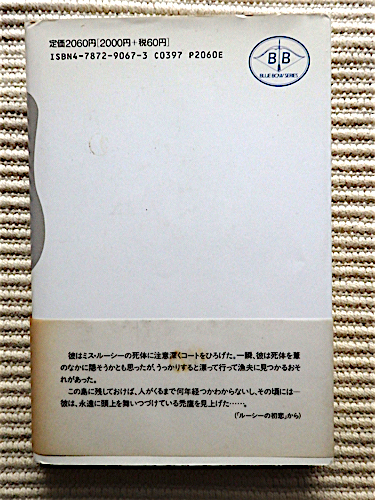 定価2060円[2000円+税60円]
ISBN4-7872-9067-3 C0397 P2060E
B B
BLUE BOW SERIES
彼はミス・ルーシーの死体に注意深くコートをひろげた。一瞬、彼は死体を葦
のなかに隠そうかとも思ったが、うっかりすると漂って行って漁夫に見つかるおそ
れがあった。
この島に残しておけば、人がくるまで何年経つかわからないし、その頃には—
彼は、永遠に頭上を舞いつづけている禿鷹を見上げた……。
(「ルーシーの初恋」から)